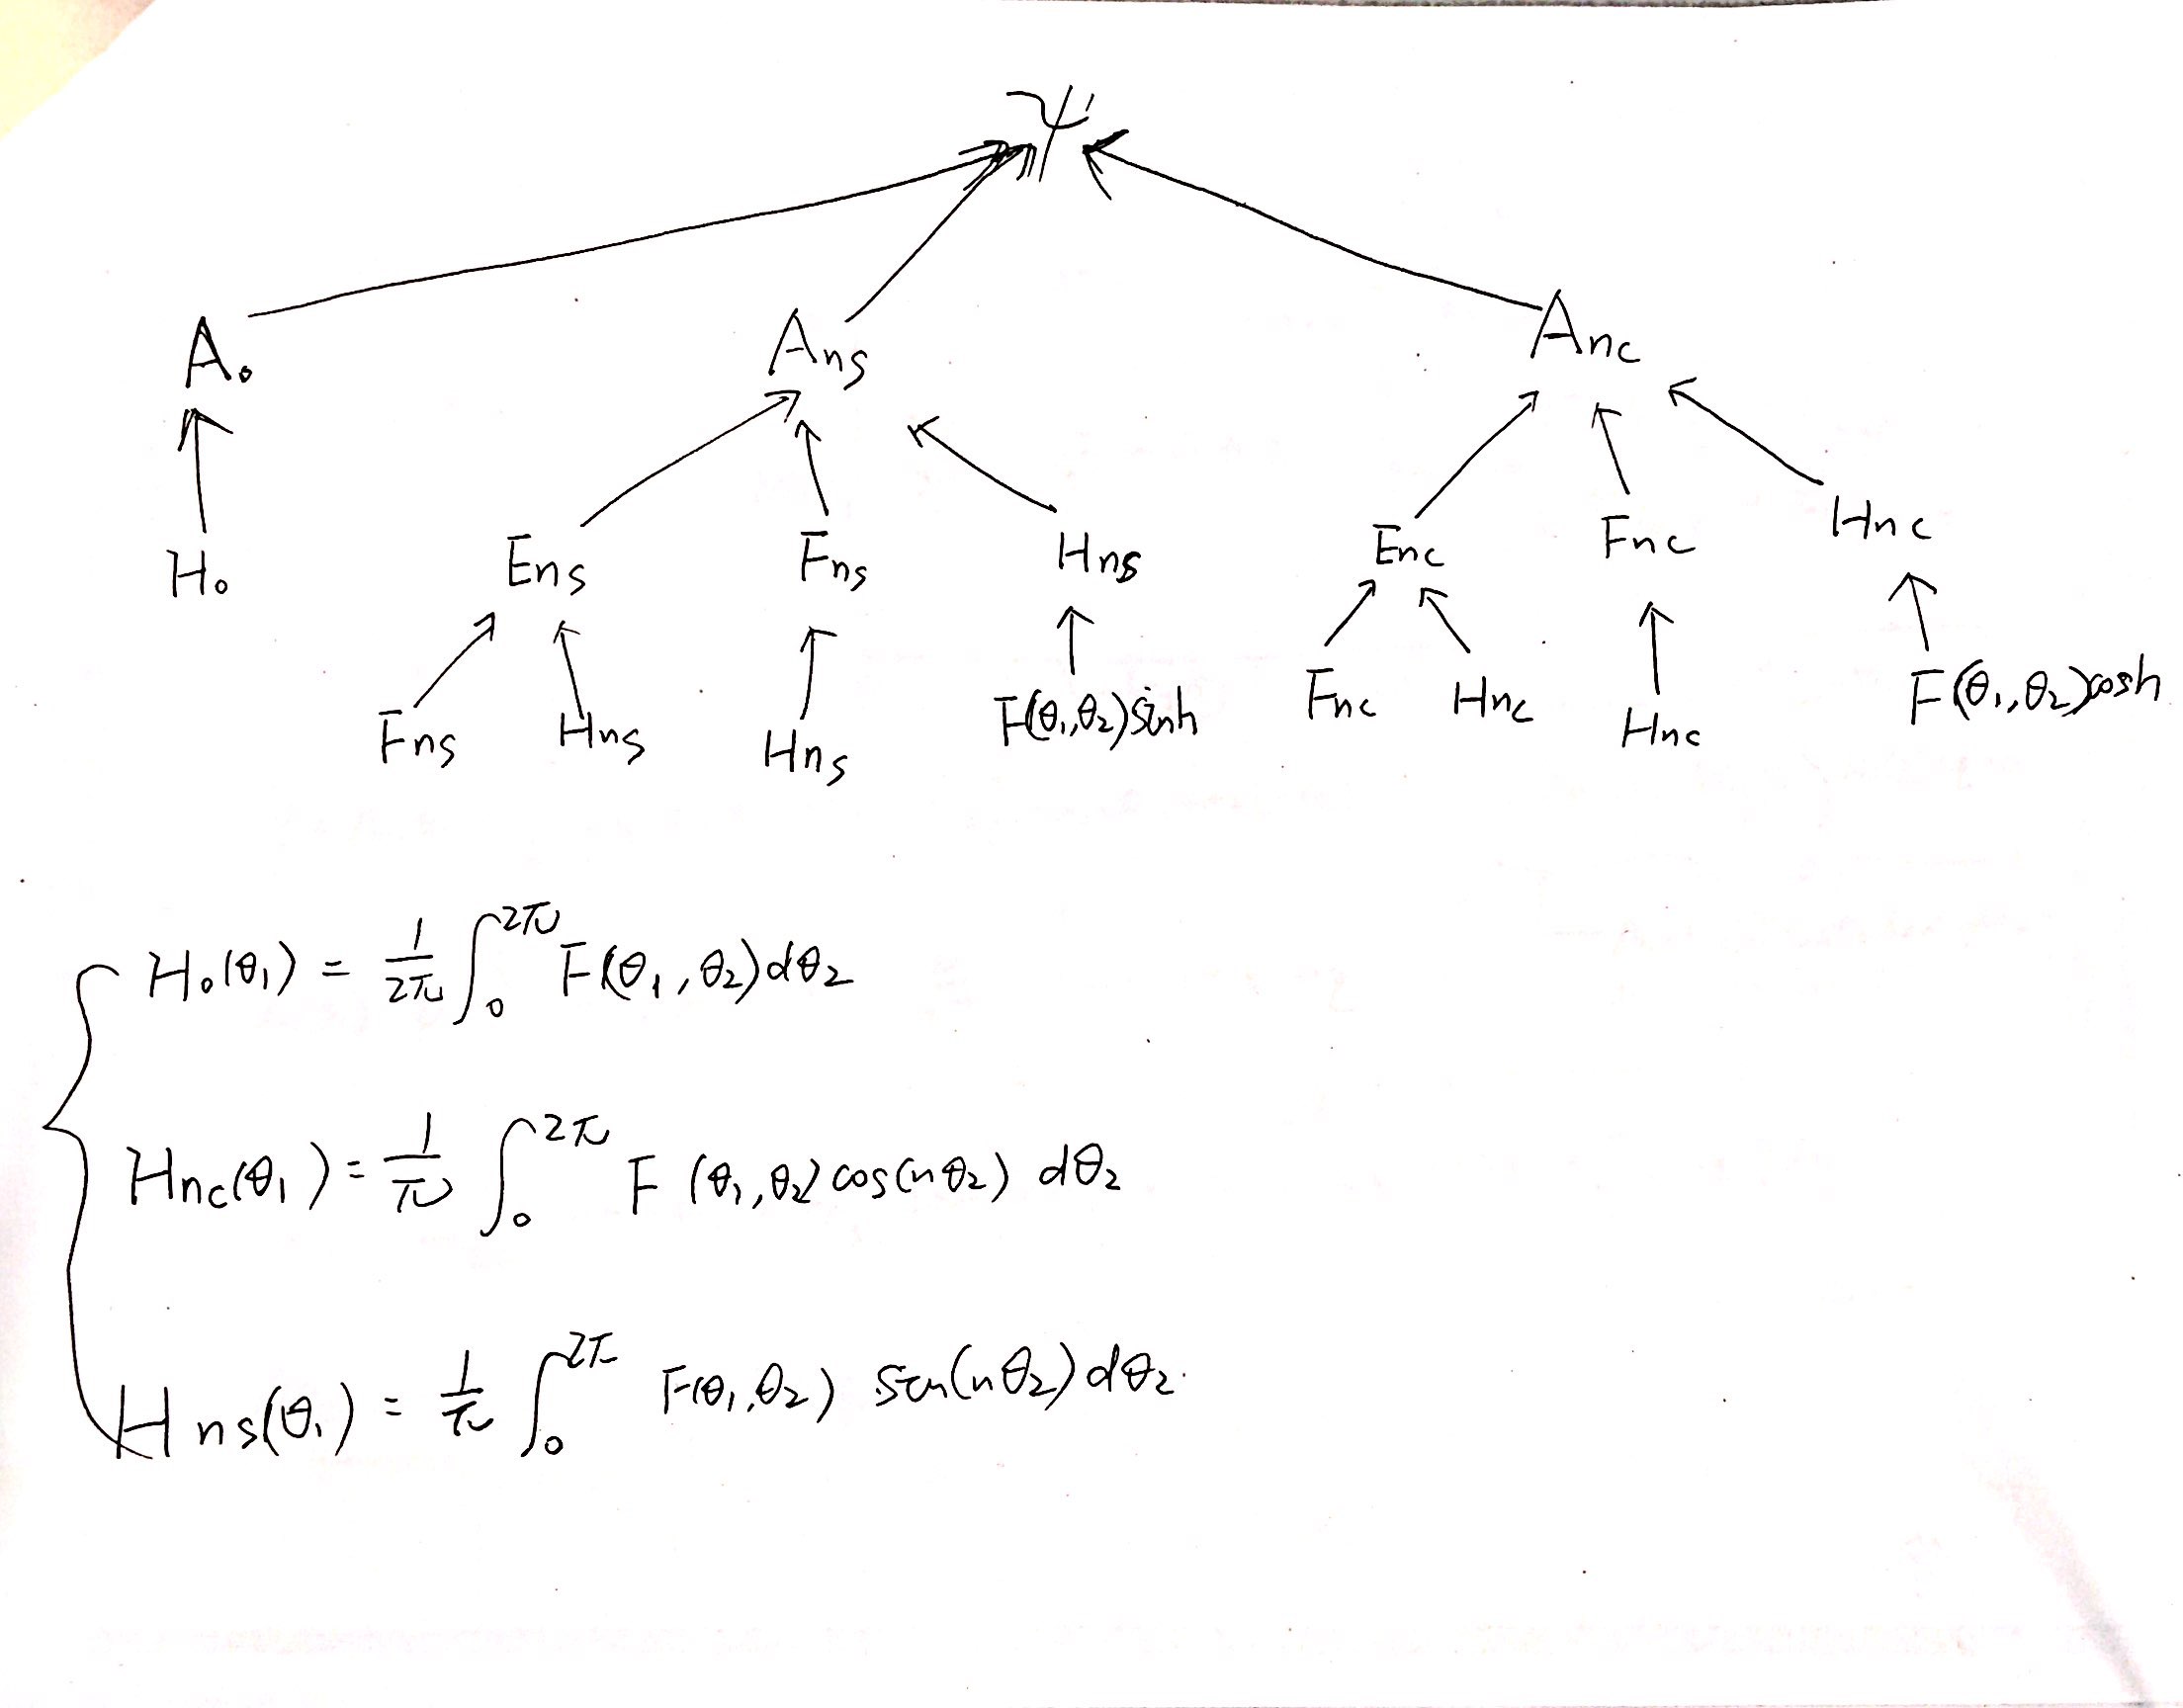 Ψ
A₀ Ans Anc
H₀ Ens Fns Hns Enc Fnc Hnc
Fns Hns Hns F(θ₁,θ₂)sinh Fnc Hnc Hnc F(θ₁,θ₂)cosh
H₀(θ₁) = 1/2π ∫₀^2π F(θ₁,θ₂)dθ₂
Hnc(θ₁) = 1/π ∫₀^2π F(θ₁,θ₂)cos(nθ₂) dθ₂
Hns(θ₁) = 1/π ∫₀^2π F(θ₁,θ₂) sin(nθ₂)dθ₂.